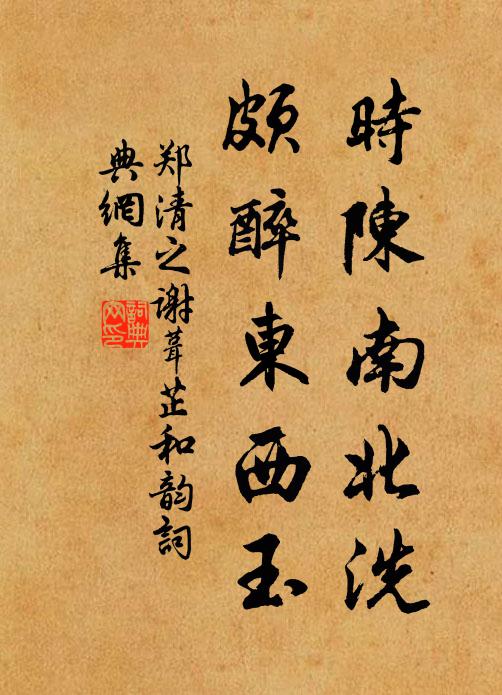 時陳南北洗
頗醉東西玉
郑清之谢葺芷和韵詞
典網集
詞典
网印